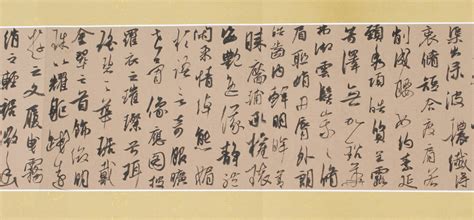 渠出淥波穠纖得
衷脩短合度肩若
削成腰如約素延
頸秀項皓質呈露
芳澤無加鉛華
弗御雲髻峨峨修
眉聯娟丹脣外朗
皓齒內鮮明眸善
睞靨輔承權瓌
姿艷逸儀靜體
閑柔情綽態媚
於語言奇服曠
世骨像應圖披
羅衣之璀璨兮珥
瑤碧之華琚戴
金翠之首飾綴明
珠以耀軀踐遠
遊之文履曳霧
綃之輕裾微幽